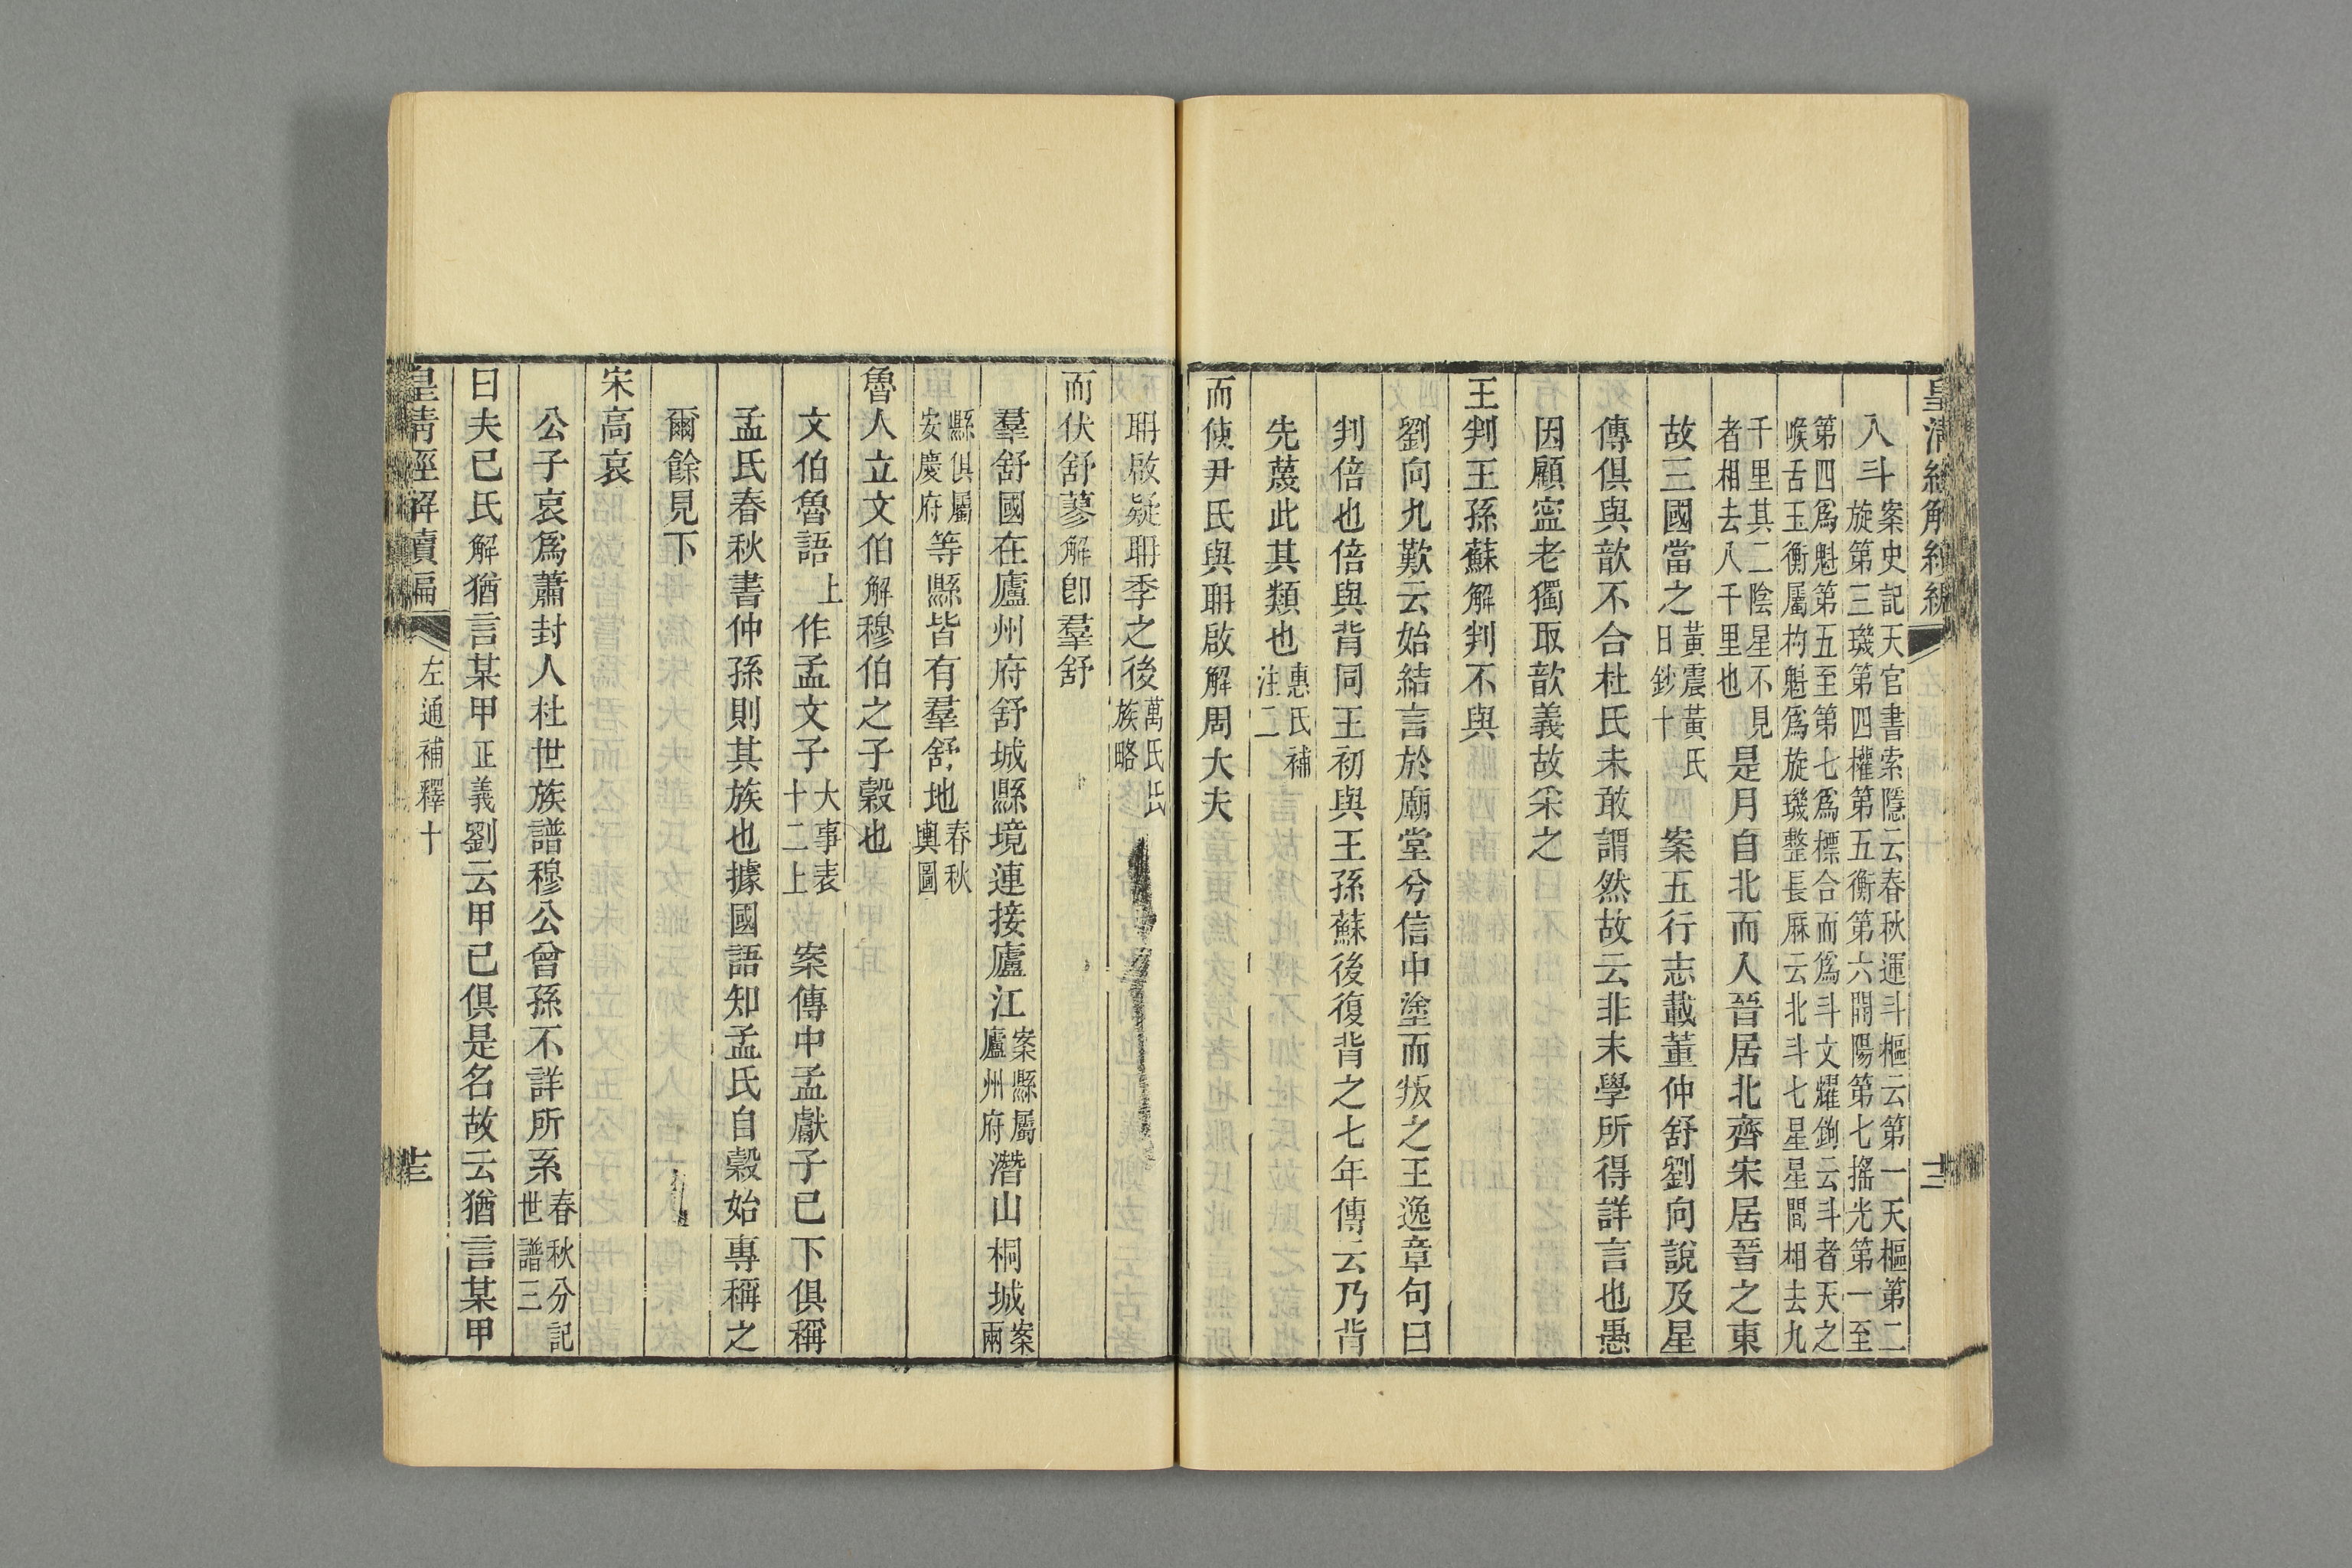 皇清經解續編
入斗案史記天官書索隱云春秋運斗樞云第一天樞第二
旋第三璣第四權第五衡第六開陽第七搖光第一至
第四爲魁第五至第七爲標合而爲斗文耀鉤云斗者天之
喉舌玉衡屬杓魁爲旋璣整長厤云北斗七星星間相去九
千里其二陰星不見
者相去八千里也
是月自北而入晉居北齊宋居晉之東
故三國當之黃震黃氏
日鈔十
案五行志載董仲舒劉向說及星
傳俱與歆不合杜氏未敢謂然故云非末學所得詳言也愚
因顧寧老獨取歆義故采之
王判王孫蘇解判不與
劉向九歎云始結言於廟堂兮信中塗而叛之王逸章句曰
判倍也倍與背同王初與王孫蘇後復背之七年傳云乃背
先蔑此其類也惠氏補
注二
而使尹氏與聃啟解周大夫
三
聃啟疑聃季之後萬氏氏
族略
而伏舒蓼解卽羣舒
羣舒國在廬州府舒城縣境連接廬江案縣屬
廬州府
潛山桐城案兩
縣俱屬
安慶府
等縣皆有羣舒地春秋
輿圖
魯人立文伯解穆伯之子穀也
文伯魯語上作孟文子大事表
十二上
案傳中孟獻子已下俱稱
孟氏春秋書仲孫則其族也據國語知孟氏自穀始專稱之
爾餘見下
宋高哀
公子哀爲蕭封人杜世族譜穆公曾孫不詳所系春秋分記
世譜三
曰夫己氏解猶言某甲正義劉云甲己俱是名故云猶言某甲
皇清經解續編
左通補釋十